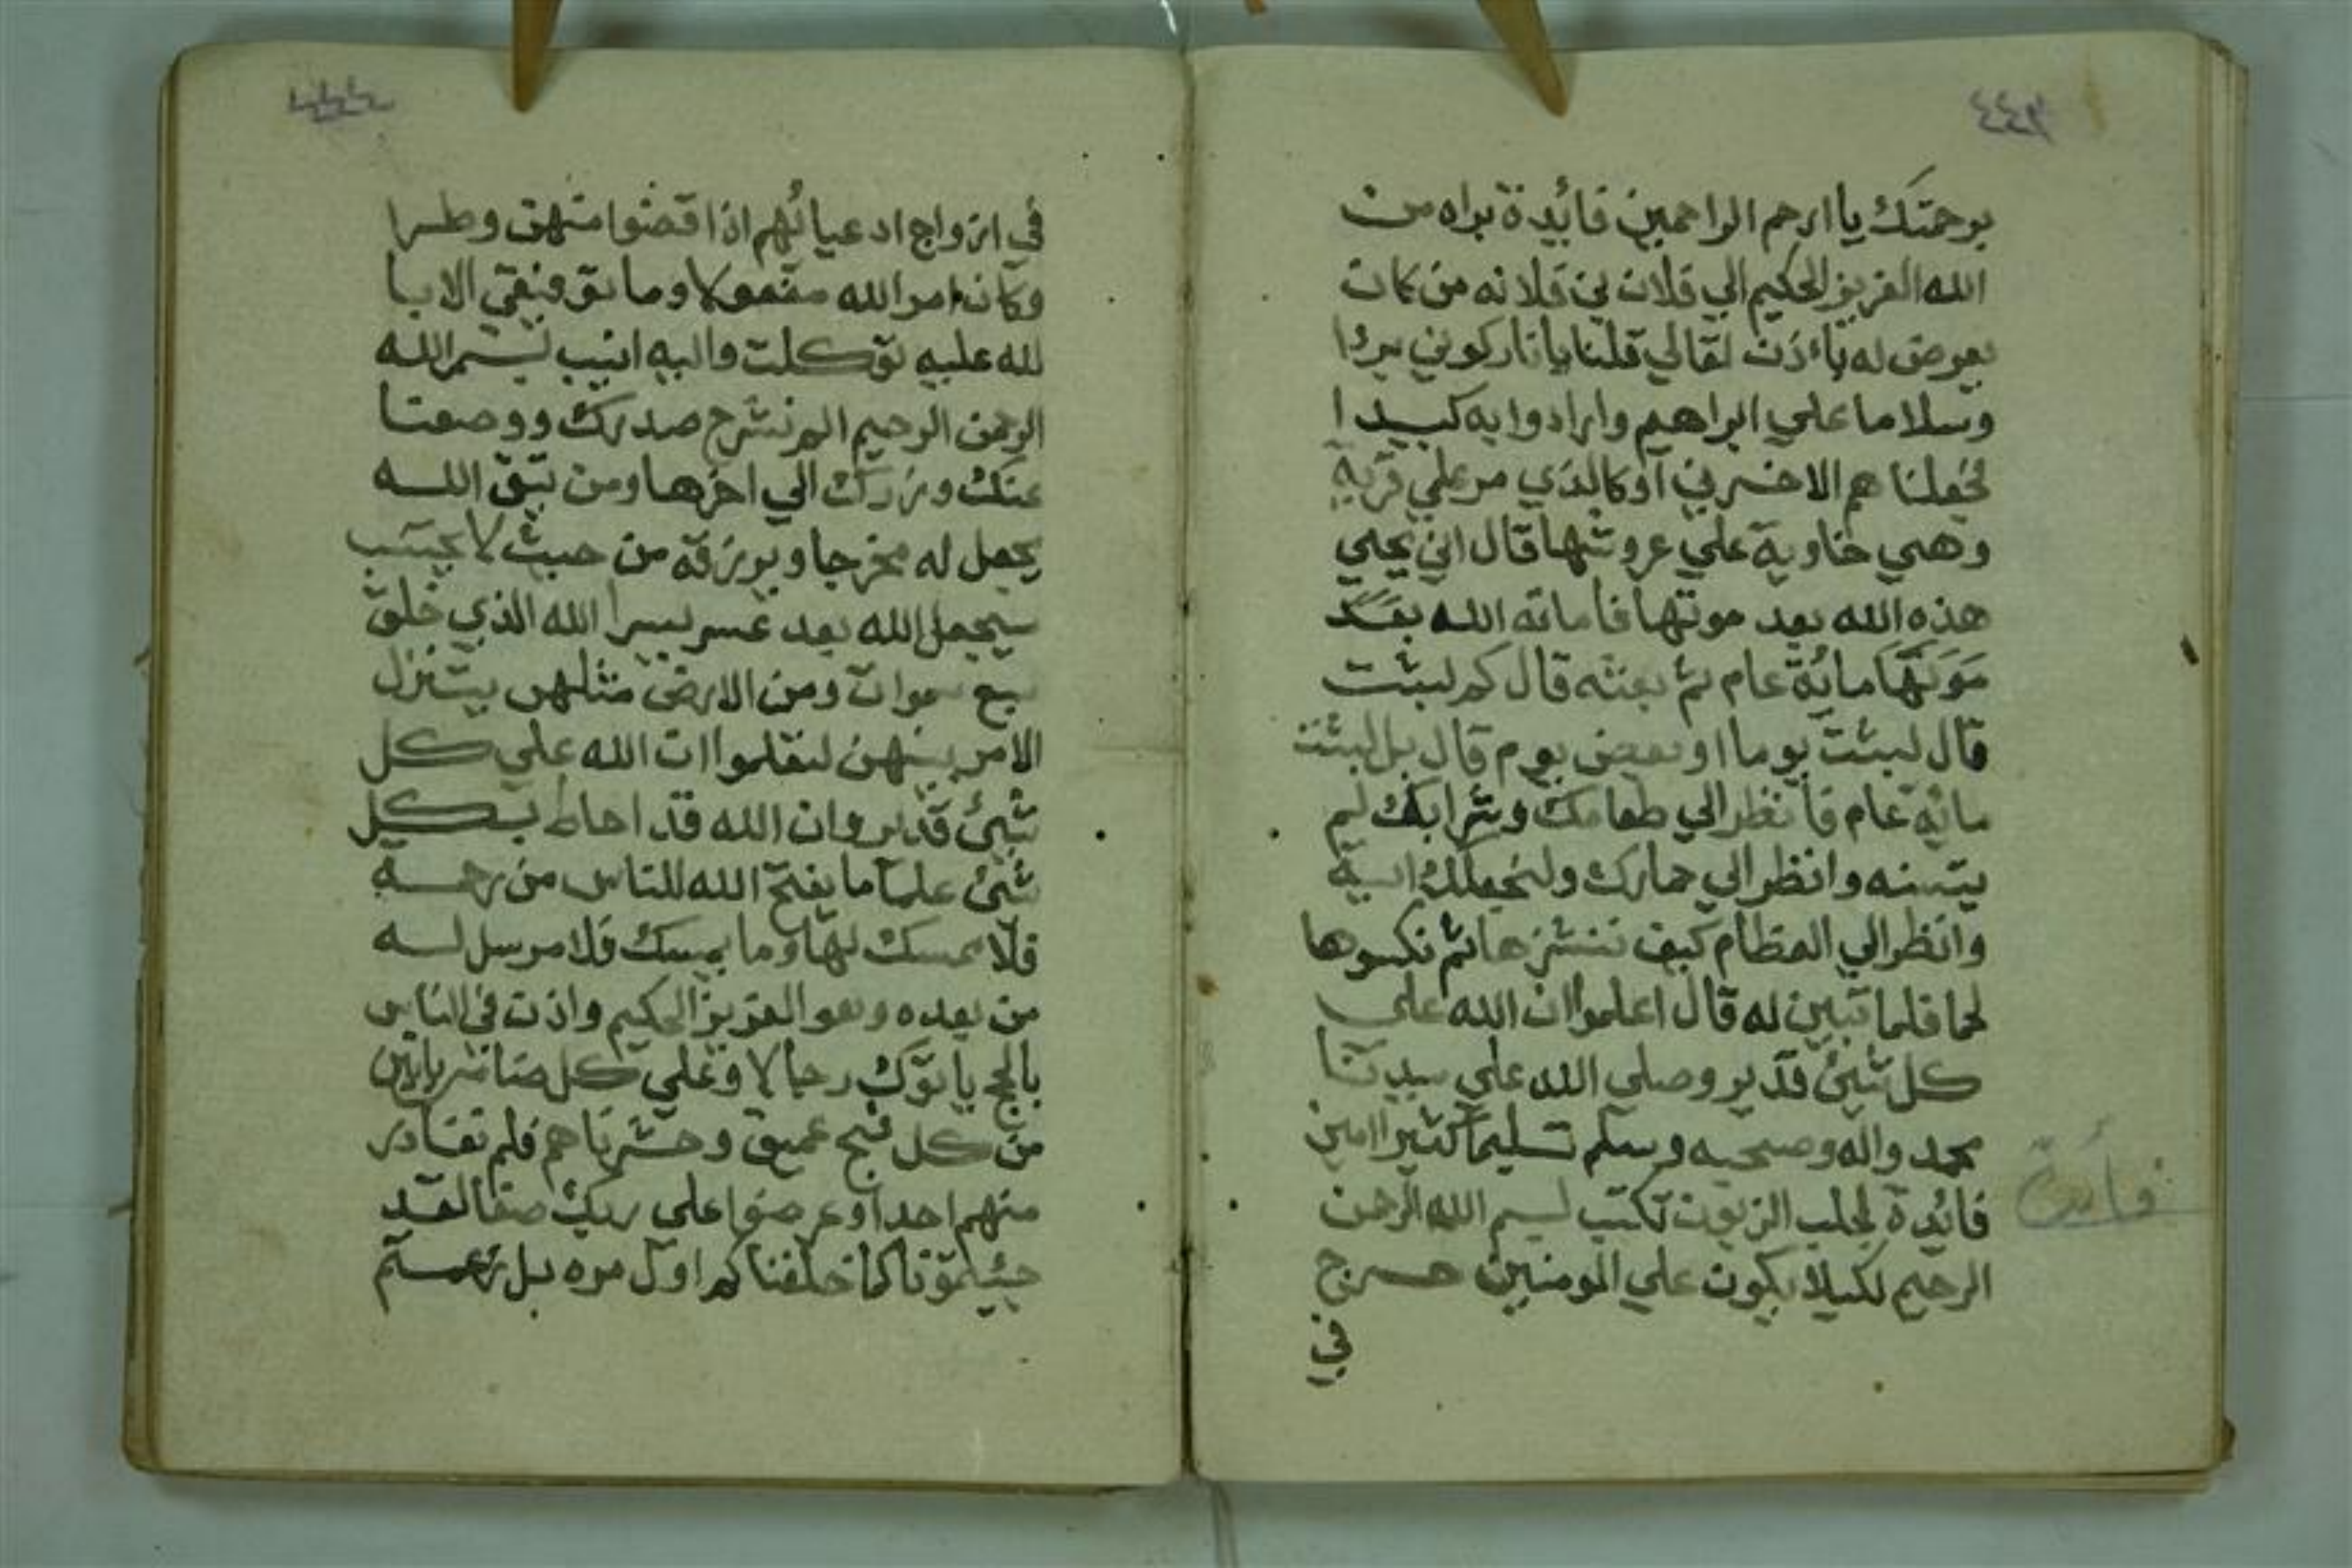 ٤٤٣
برحمتك يا ارحم الراحمين فائيدة براه من
الله العزيز الحكيم الي فلان بن فلانه من كان
يعرض له باءذن تعالي قلنا يا نار كوني بردا
وسلاما علي ابراهيم وارادوا به كيدا
فجعلنا هم الاخسرين اوكالذي مر علي قرية
وهي خاوية علي عروشها قال اني يحيي
هذه الله بعد موتها فاماته الله بعد
موتها مائة عام ثم بعثه قال كم لبثت
قال لبثت يوما او بعض يوم قال بل لبثت
مائة عام فانظر الي طعامك وشرابك لم
يتسنه وانظر الي حمارك ولنجعلك اية
وانظر الي العظام كيف ننشزها ثم نكسوها
لحما فلما تبين له قال اعلموا ان الله علي
كل شيئ قدير وصلي الله علي سيدنا
محمد واله وصحبه وسلم تسليما كثيرا امين
فائيدة لجلب الزبون تكتب بسم الله الرحمن
الرحيم لكيلا يكون علي المومنين حرج
في
فائدة
٤٤٤
في ازواج ادعيائهم اذا قضوا منهن وطرا
وكان امر الله مفعولا وما توفيقي الا با
لله عليه توكلت واليه انيب بسم الله
الرحمن الرحيم الم نشرح صدرك ووضعنا
عنك وزرك الي اخرها ومن يتق الله
يجعل له مخرجا ويرزقه من حيث لا يحتسب
سيجعل الله بعد عسر يسرا الله الذي خلق
سبع سموات ومن الارض مثلهن يتنزل
الامر بينهن لتعلموا ان الله علي كل
شيئ قدير وان الله قد احاط بكل
شيئ علما ما يفتح الله للناس من رحمة
فلا ممسك لها وما يمسك فلا مرسل له
من بعده وهو العزيز الحكيم واذن في الناس
بالحج ياتوك رجالا وعلي كل ضامر ياتين
من كل فج عميق وحشرناهم فلم نغادر
منهم احدا وعرضوا علي ربك صفا لقد
جيئتمونا كما خلقناكم اول مره بل زعمتم